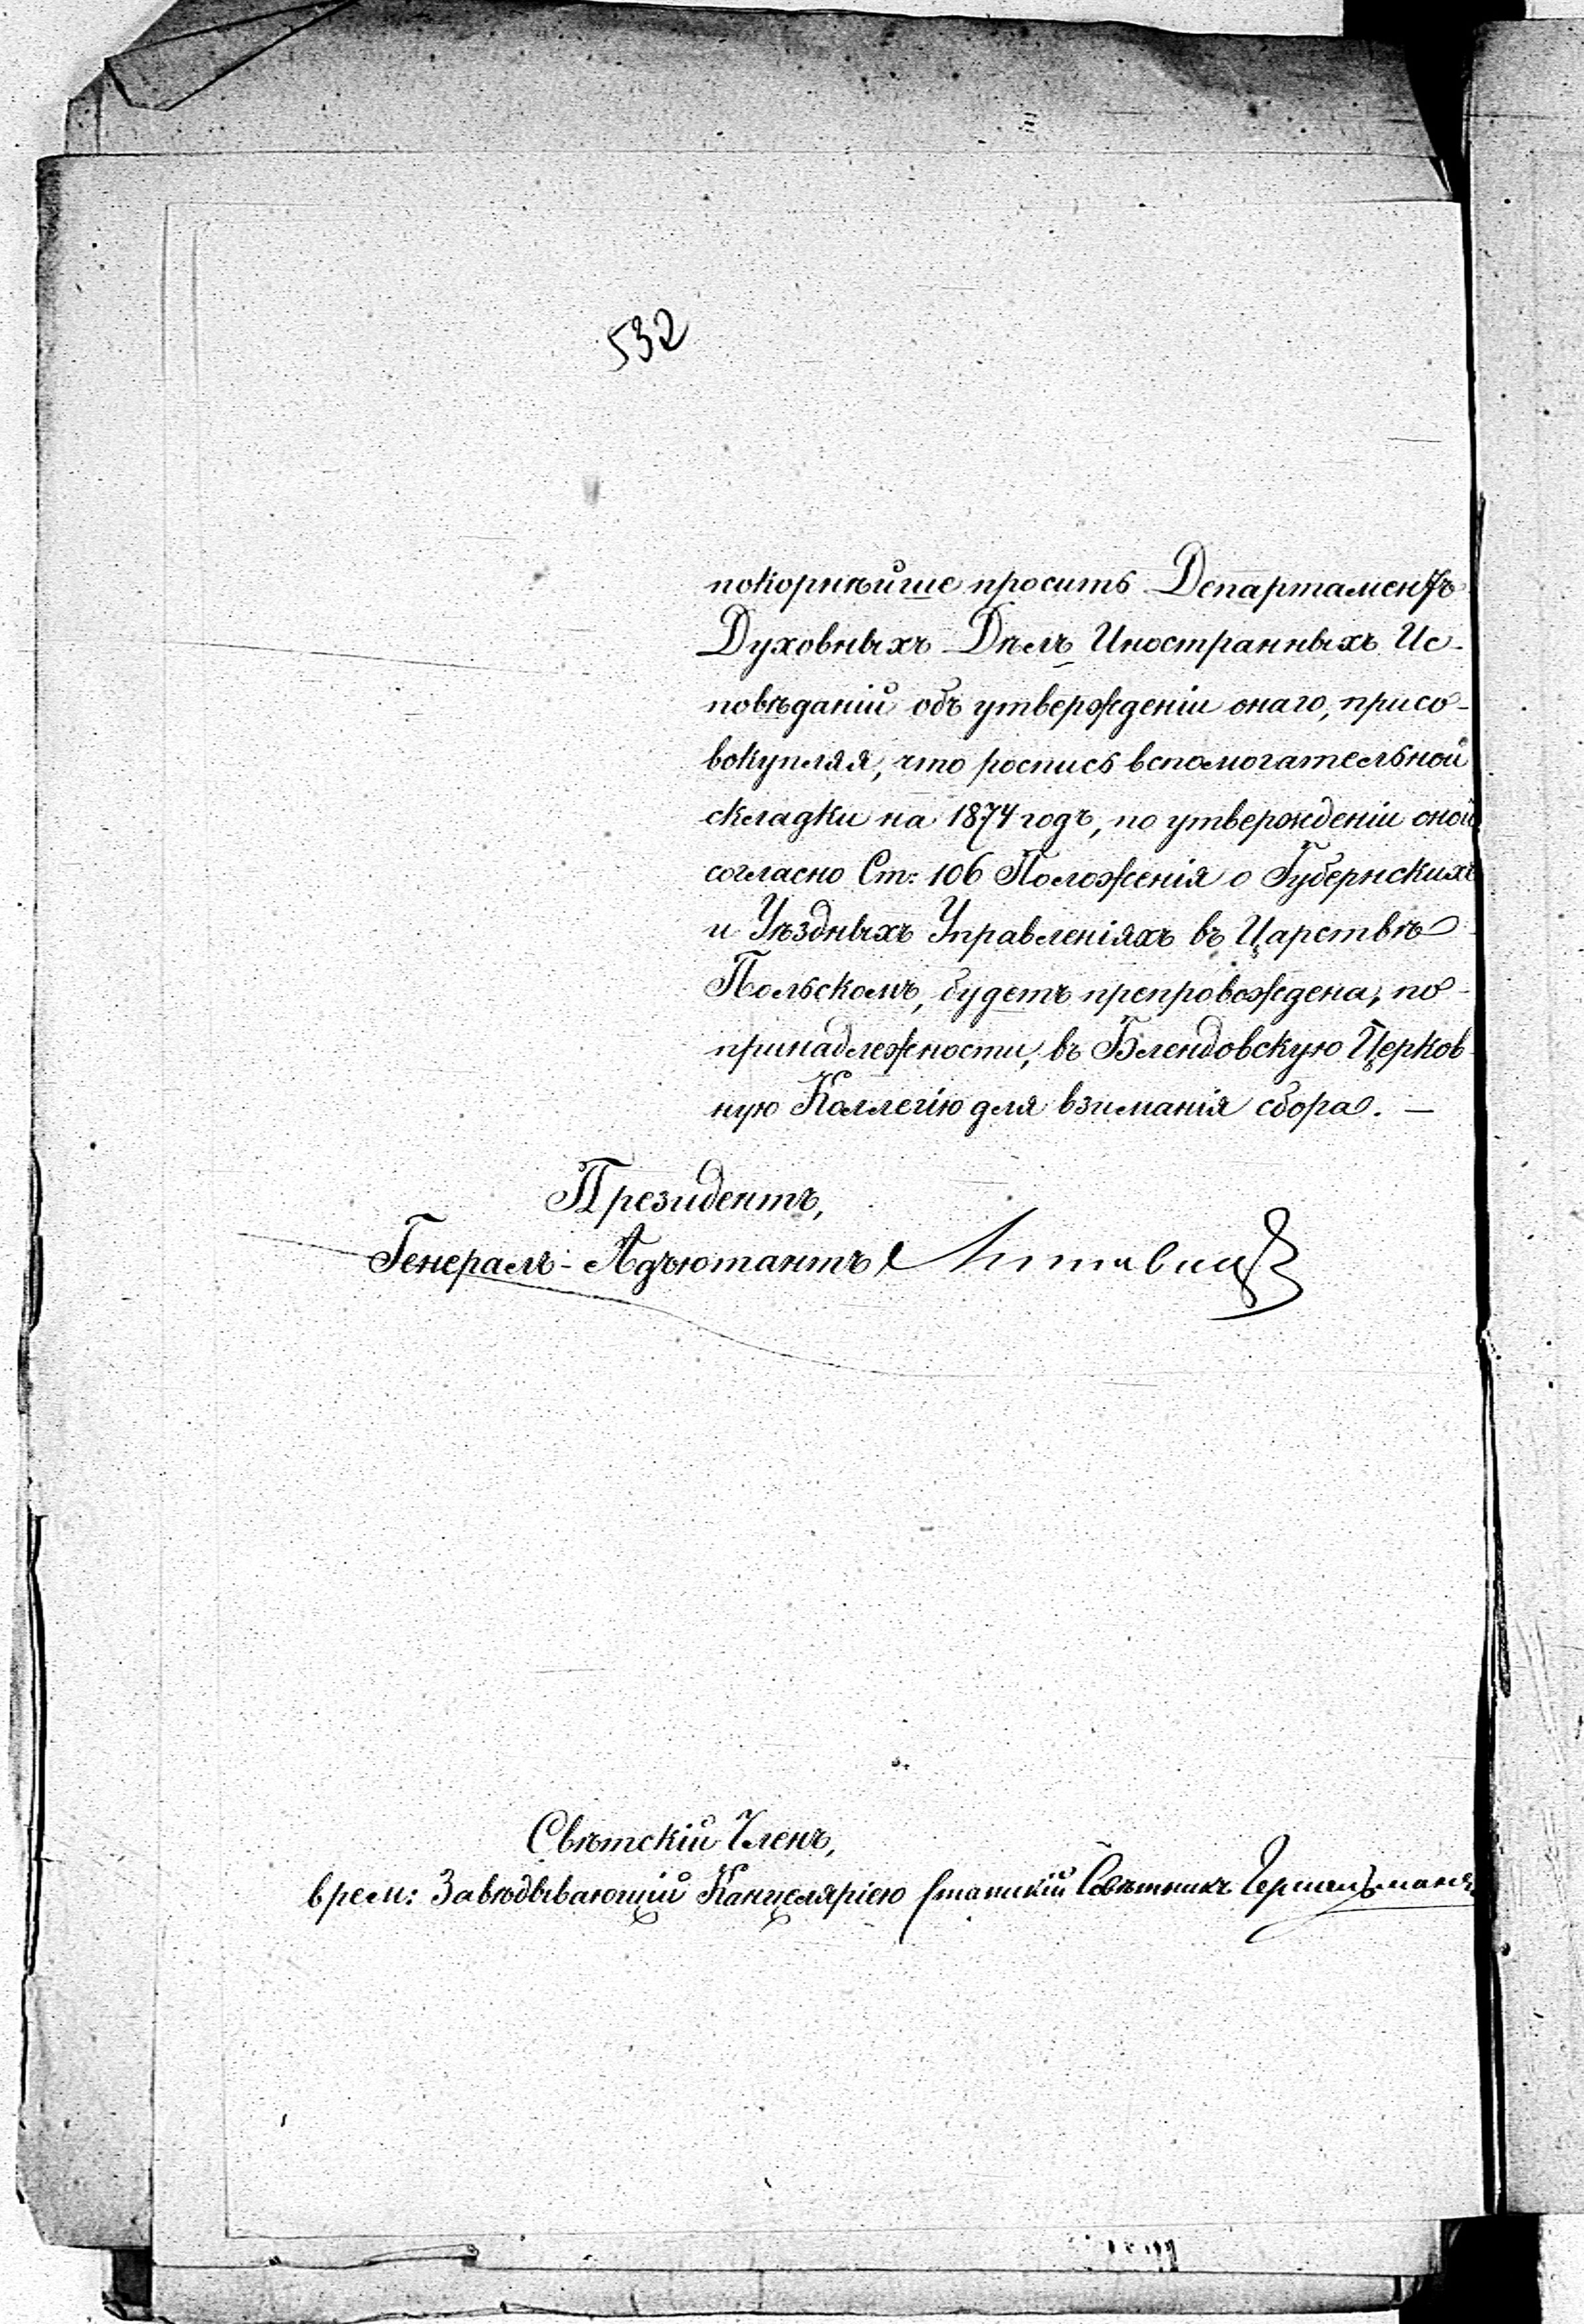 532
покорнѣйше просить Департаментъ
Духовныхъ Дѣлъ Иностранныхъ Ис-
повѣданій объ утвержденіи онаго, присо-
вокупляя, что роспись вспомогательной
складки на 1874 годъ, по утвержденіи оной
согласно Ст: 106 Положенія о Губернскихъ
и Уѣздныхъ Управленіяхъ въ Царствѣ
Польскомъ, будетъ препровождена, по
принадлежности, въ Блендовскую Церков-
ную Коллегію для взиманія сбора. —
Президентъ,
Генералъ-Адъютантъ
Свѣтскій Членъ,
врем: Завѣдывающій Канцеляріею Статскій Совѣтникъ